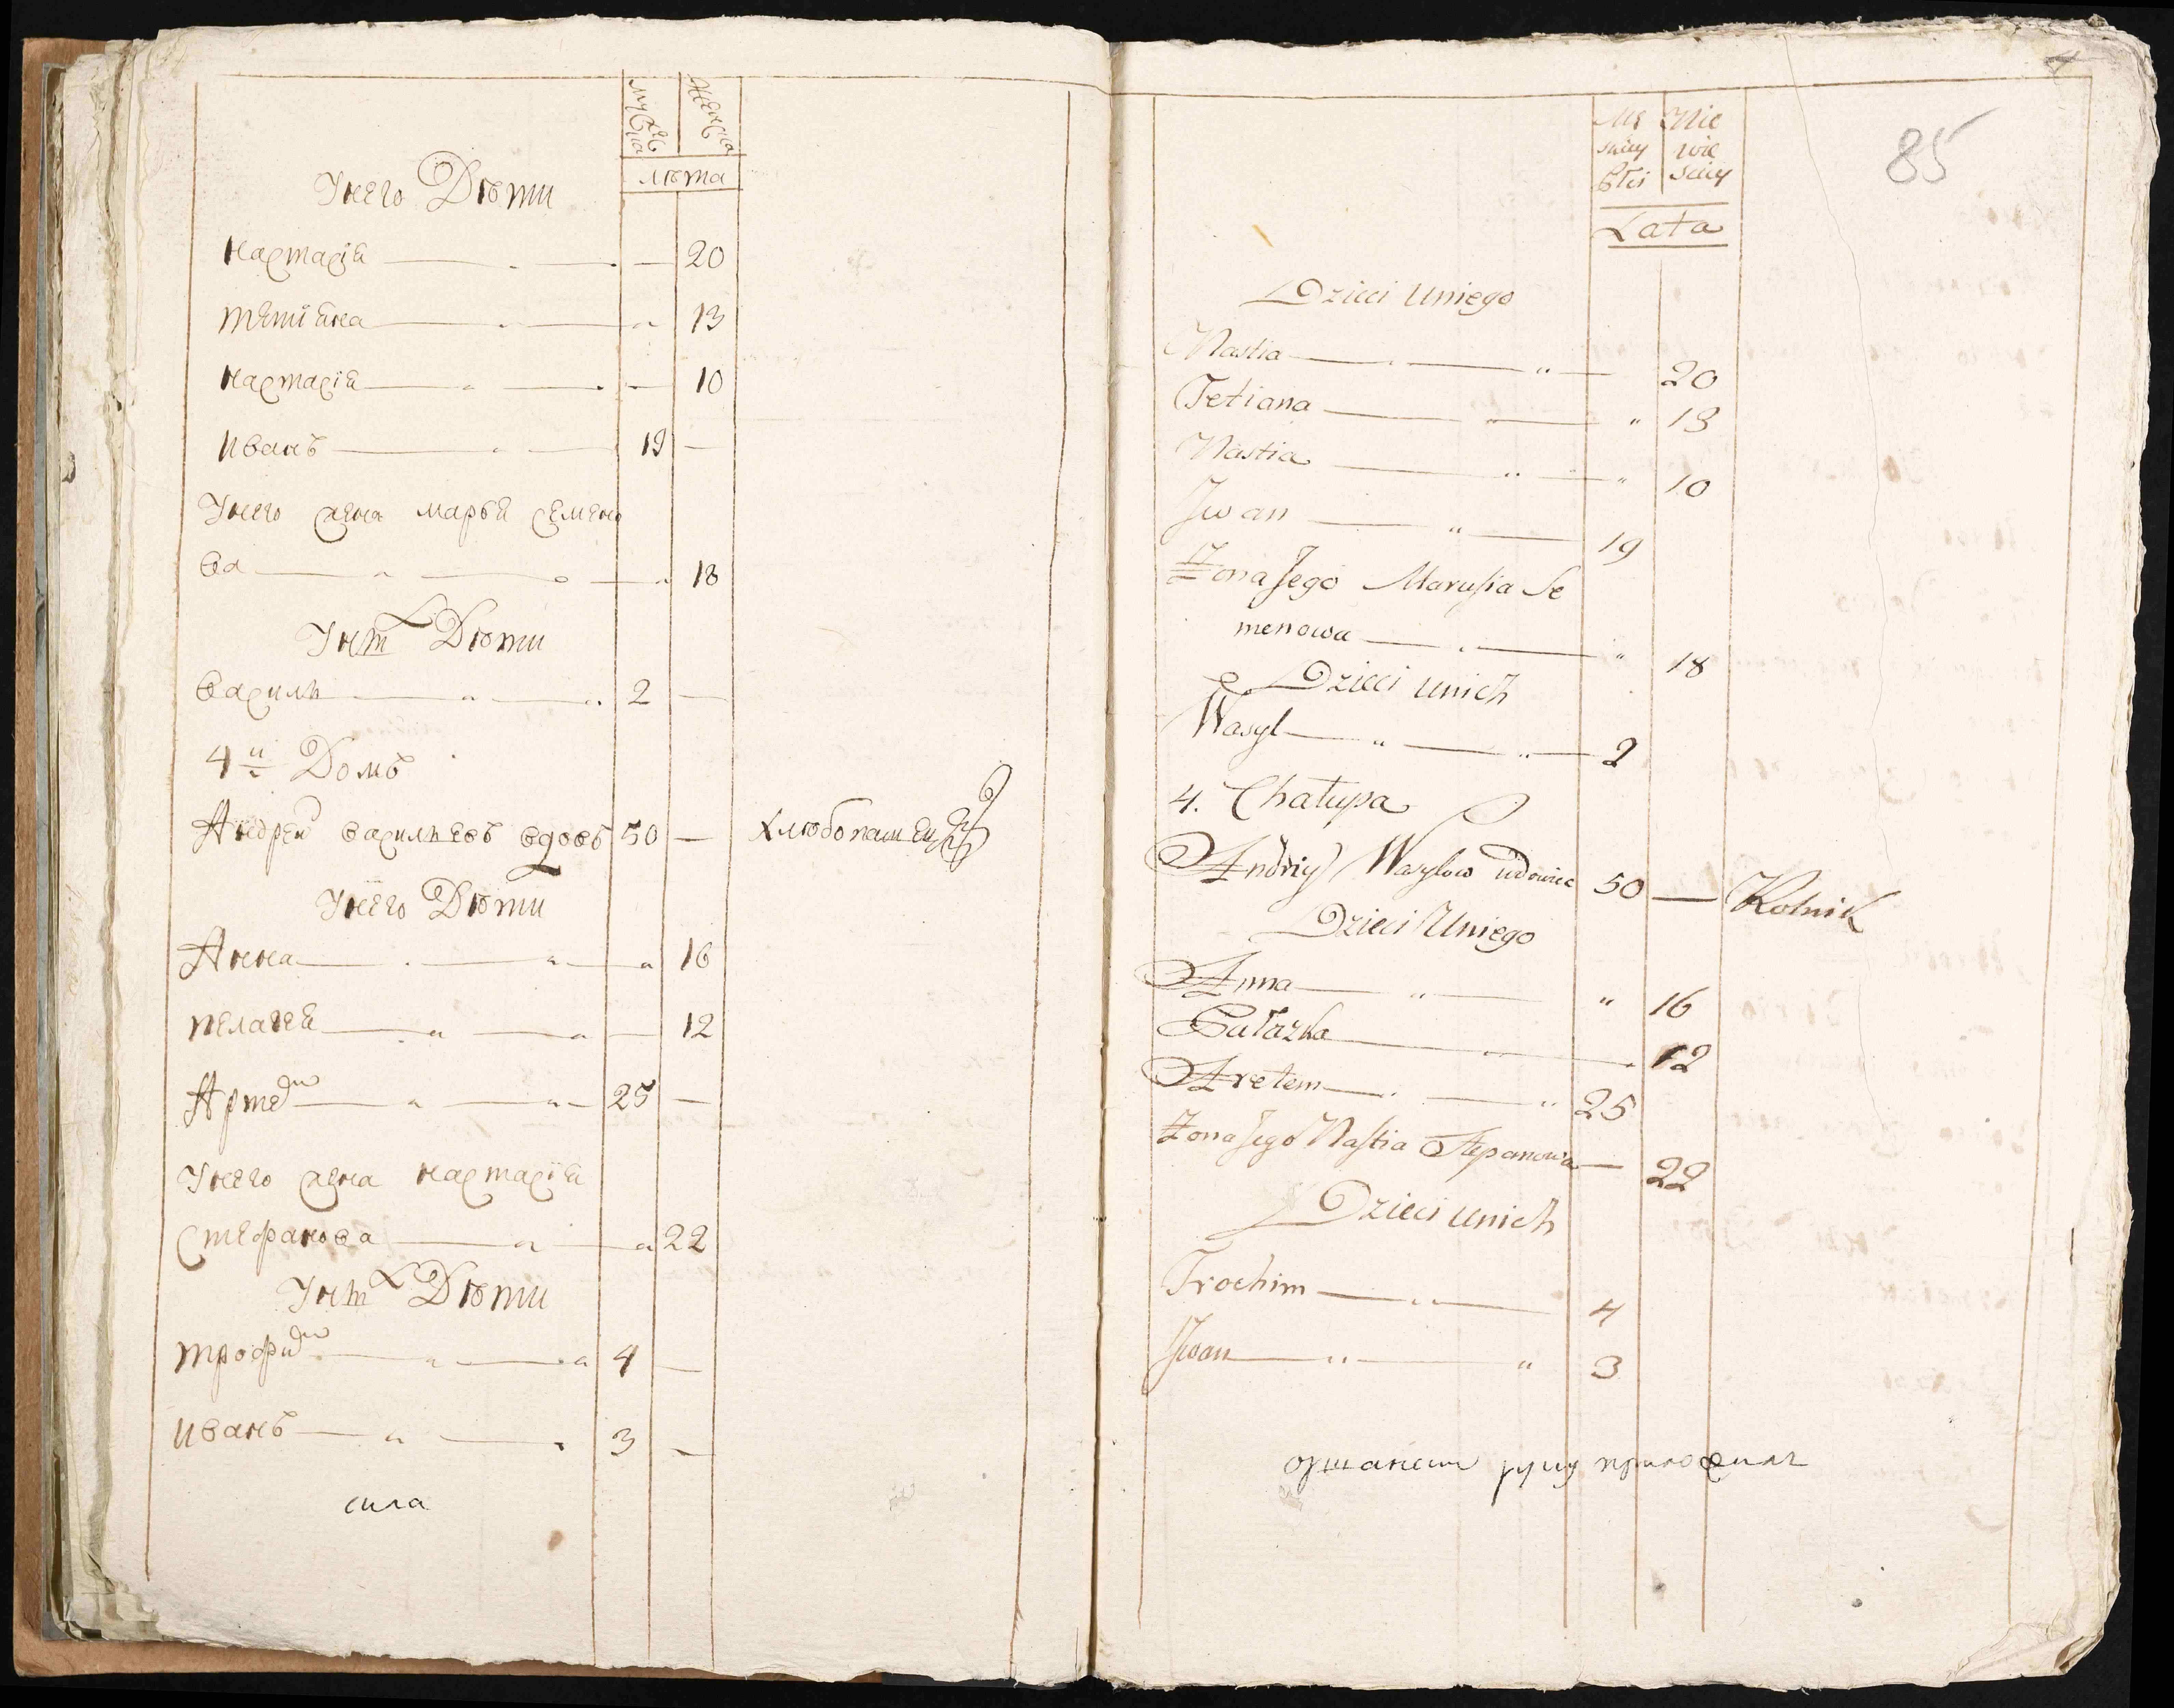 мужеска
женска
лѣта
У него Дѣти
настасія — — 20
тетіяна — 13
настасія — — 10
иванъ — 19 —
У него жена марья семено
ва — 18
У ни<sup>х</sup> Дѣти
василь — 2 —
4й Домъ
Андрей васильевъ вдовъ 50 — хлѣбопашецъ
У него Дѣти
Анна — 16
пелагея — — 12
Артем — 25 —
У него жена настасія
Стефанова — 22
У них Дѣти
трофим — 4 —
иванъ — 3 —
сила
85
Mę Nie
skiey wie
płci sciey
Lata
Dzieci Uniego
Nastia — " — 20
Tetiana — " — " 13
Nastia — " — " 10
Jwan — " — 19
Żona Jego Marusia Se
menowa — " — " 18
Dzieci Unich
Wasyl — " — " — 2
4. Chałupa
Andriy Wasylow udowiec 50 — Rolnik
Dzieci Uniego
Anna — " — " 16
Pałazka — " — 12
Aretem — " — " 25
Żona Jego Nastia Stepanowa — 22
Dzieci Unich
Trochim — " — 4
Jwan — " — " 3
руку приложилъ